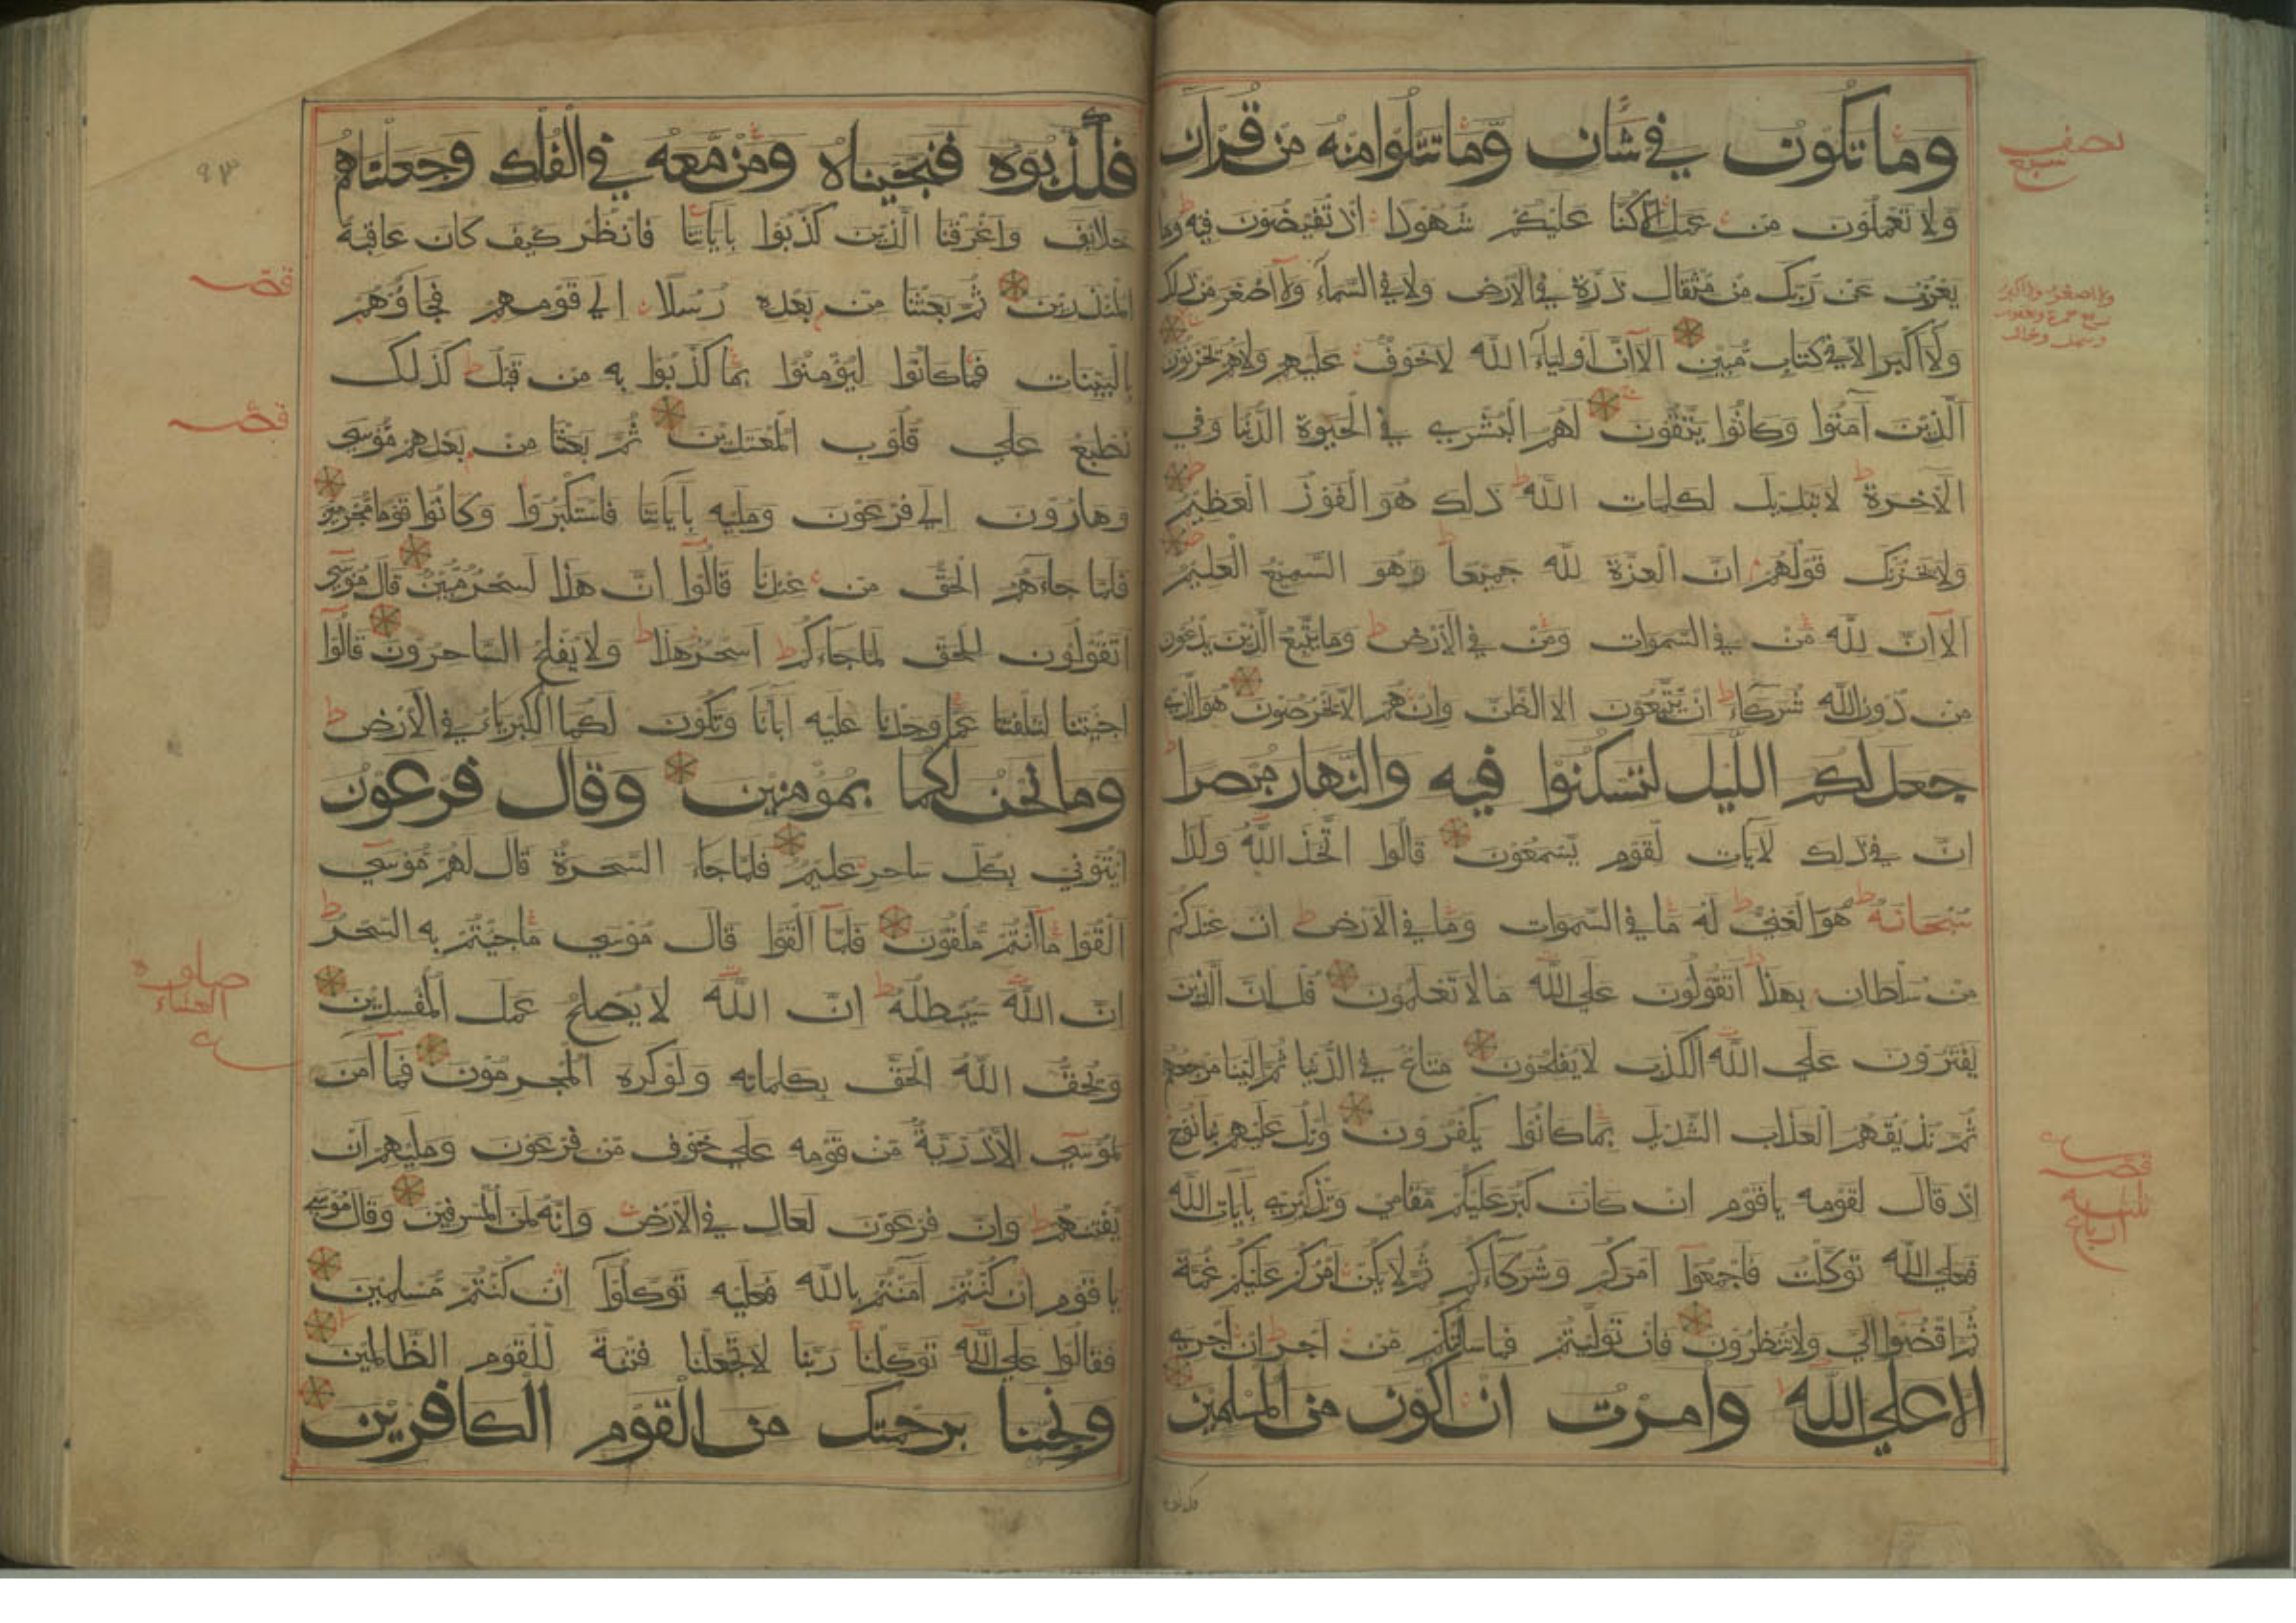 وما تكون في شان وما تتلوا منه من قران
ولا تعملون من عمل الا كنا عليكم شهودا اذ تفيضون فيه وما
يعزب عن ربك من مثقال ذرة في الارض ولا في السماء ولا اصغر من ذلك
ولا اكبر الا في كتاب مبين الا ان اولياء الله لا خوف عليهم ولا هم يحزنون
الذين آمنوا وكانوا يتقون لهم البشرى في الحيوة الدنيا وفي
الآخرة لا تبديل لكلمات الله ذلك هو الفوز العظيم
ولا يحزنك قولهم ان العزة لله جميعا وهو السميع العليم
الا ان لله من في السموات ومن في الارض وما يتبع الذين يدعون
من دون الله شركاء ان يتبعون الا الظن وان هم الا يخرصون هو الذي
جعل لكم الليل لتسكنوا فيه والنهار مبصرا
ان في ذلك لايات لقوم يسمعون قالوا اتخذ الله ولدا
سبحانه هو الغني له ما في السموات وما في الارض ان عندكم
من سلطان بهذا اتقولون على الله ما لا تعلمون قل ان الذين
يفترون على الله الكذب لا يفلحون متاع في الدنيا ثم الينا مرجعهم
ثم نذيقهم العذاب الشديد بما كانوا يكفرون واتل عليهم نبا نوح
اذ قال لقومه يا قوم ان كان كبر عليكم مقامي وتذكيري بايات الله
فعلى الله توكلت فاجمعوا امركم وشركاءكم ثم لا يكن امركم عليكم غمة
ثم اقضوا الي ولا تنظرون فان توليتم فما سالتكم من اجر ان اجري
الا على الله وامرت ان اكون من المسلمين
نصف
سبع
فكذبوه
فكذبوه فنجيناه ومن معه في الفلك وجعلناهم
خلائف واغرقنا الذين كذبوا باياتنا فانظر كيف كان عاقبة
المنذرين ثم بعثنا من بعده رسلا الى قومهم فجاؤهم
بالبينات فما كانوا ليؤمنوا بما كذبوا به من قبل كذلك
نطبع على قلوب المعتدين ثم بعثنا من بعدهم موسى
وهارون الى فرعون وملئه باياتنا فاستكبروا وكانوا قوما مجرمين
فلما جاءهم الحق من عندنا قالوا ان هذا لسحر مبين قال موسى
اتقولون للحق لما جاءكم اسحر هذا ولا يفلح الساحرون قالوا
اجئتنا لتلفتنا عما وجدنا عليه اباءنا وتكون لكما الكبرياء في الارض
وما نحن لكما بمؤمنين وقال فرعون
ائتوني بكل ساحر عليم فلما جاء السحرة قال لهم موسى
القوا ما انتم ملقون فلما القوا قال موسى ما جئتم به السحر
ان الله سيبطله ان الله لا يصلح عمل المفسدين
ويحق الله الحق بكلماته ولو كره المجرمون فما آمن
لموسى الا ذرية من قومه على خوف من فرعون وملئهم ان
يفتنهم وان فرعون لعال في الارض وانه لمن المسرفين وقال موسى
يا قوم ان كنتم آمنتم بالله فعليه توكلوا ان كنتم مسلمين
فقالوا على الله توكلنا ربنا لا تجعلنا فتنة للقوم الظالمين
ونجنا برحمتك من القوم الكافرين
٩٣
صلوة
العشاء